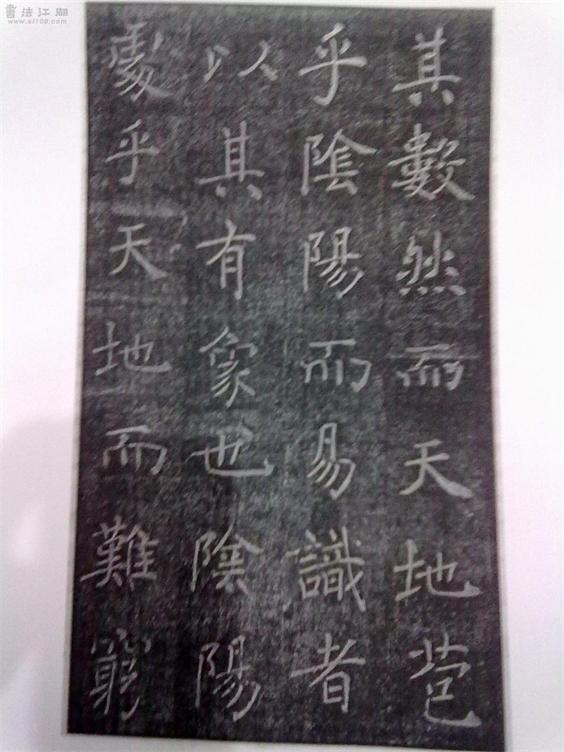 其數然而天地苞
乎陰陽而易識者
以其有象也陰陽
處乎天地而難窮
書法江湖
www.sf108.com